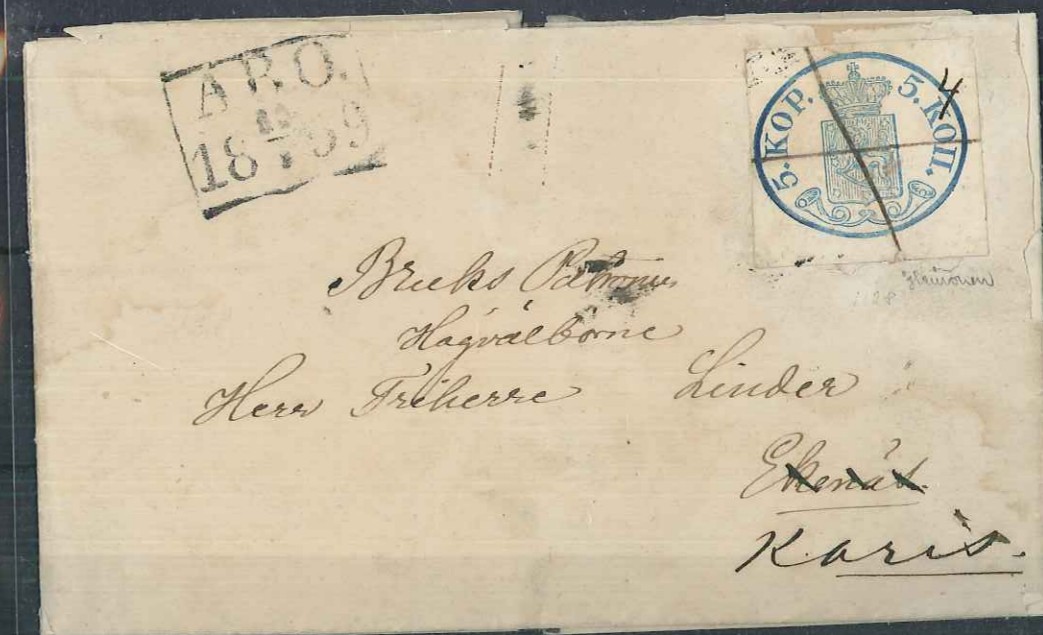 ÅBO.
18 59
5. KOP. 5. КОП.
4
Bruks Patronus
Högvälborne
Herr Friherre Linder
Ekenäs.
Karis.